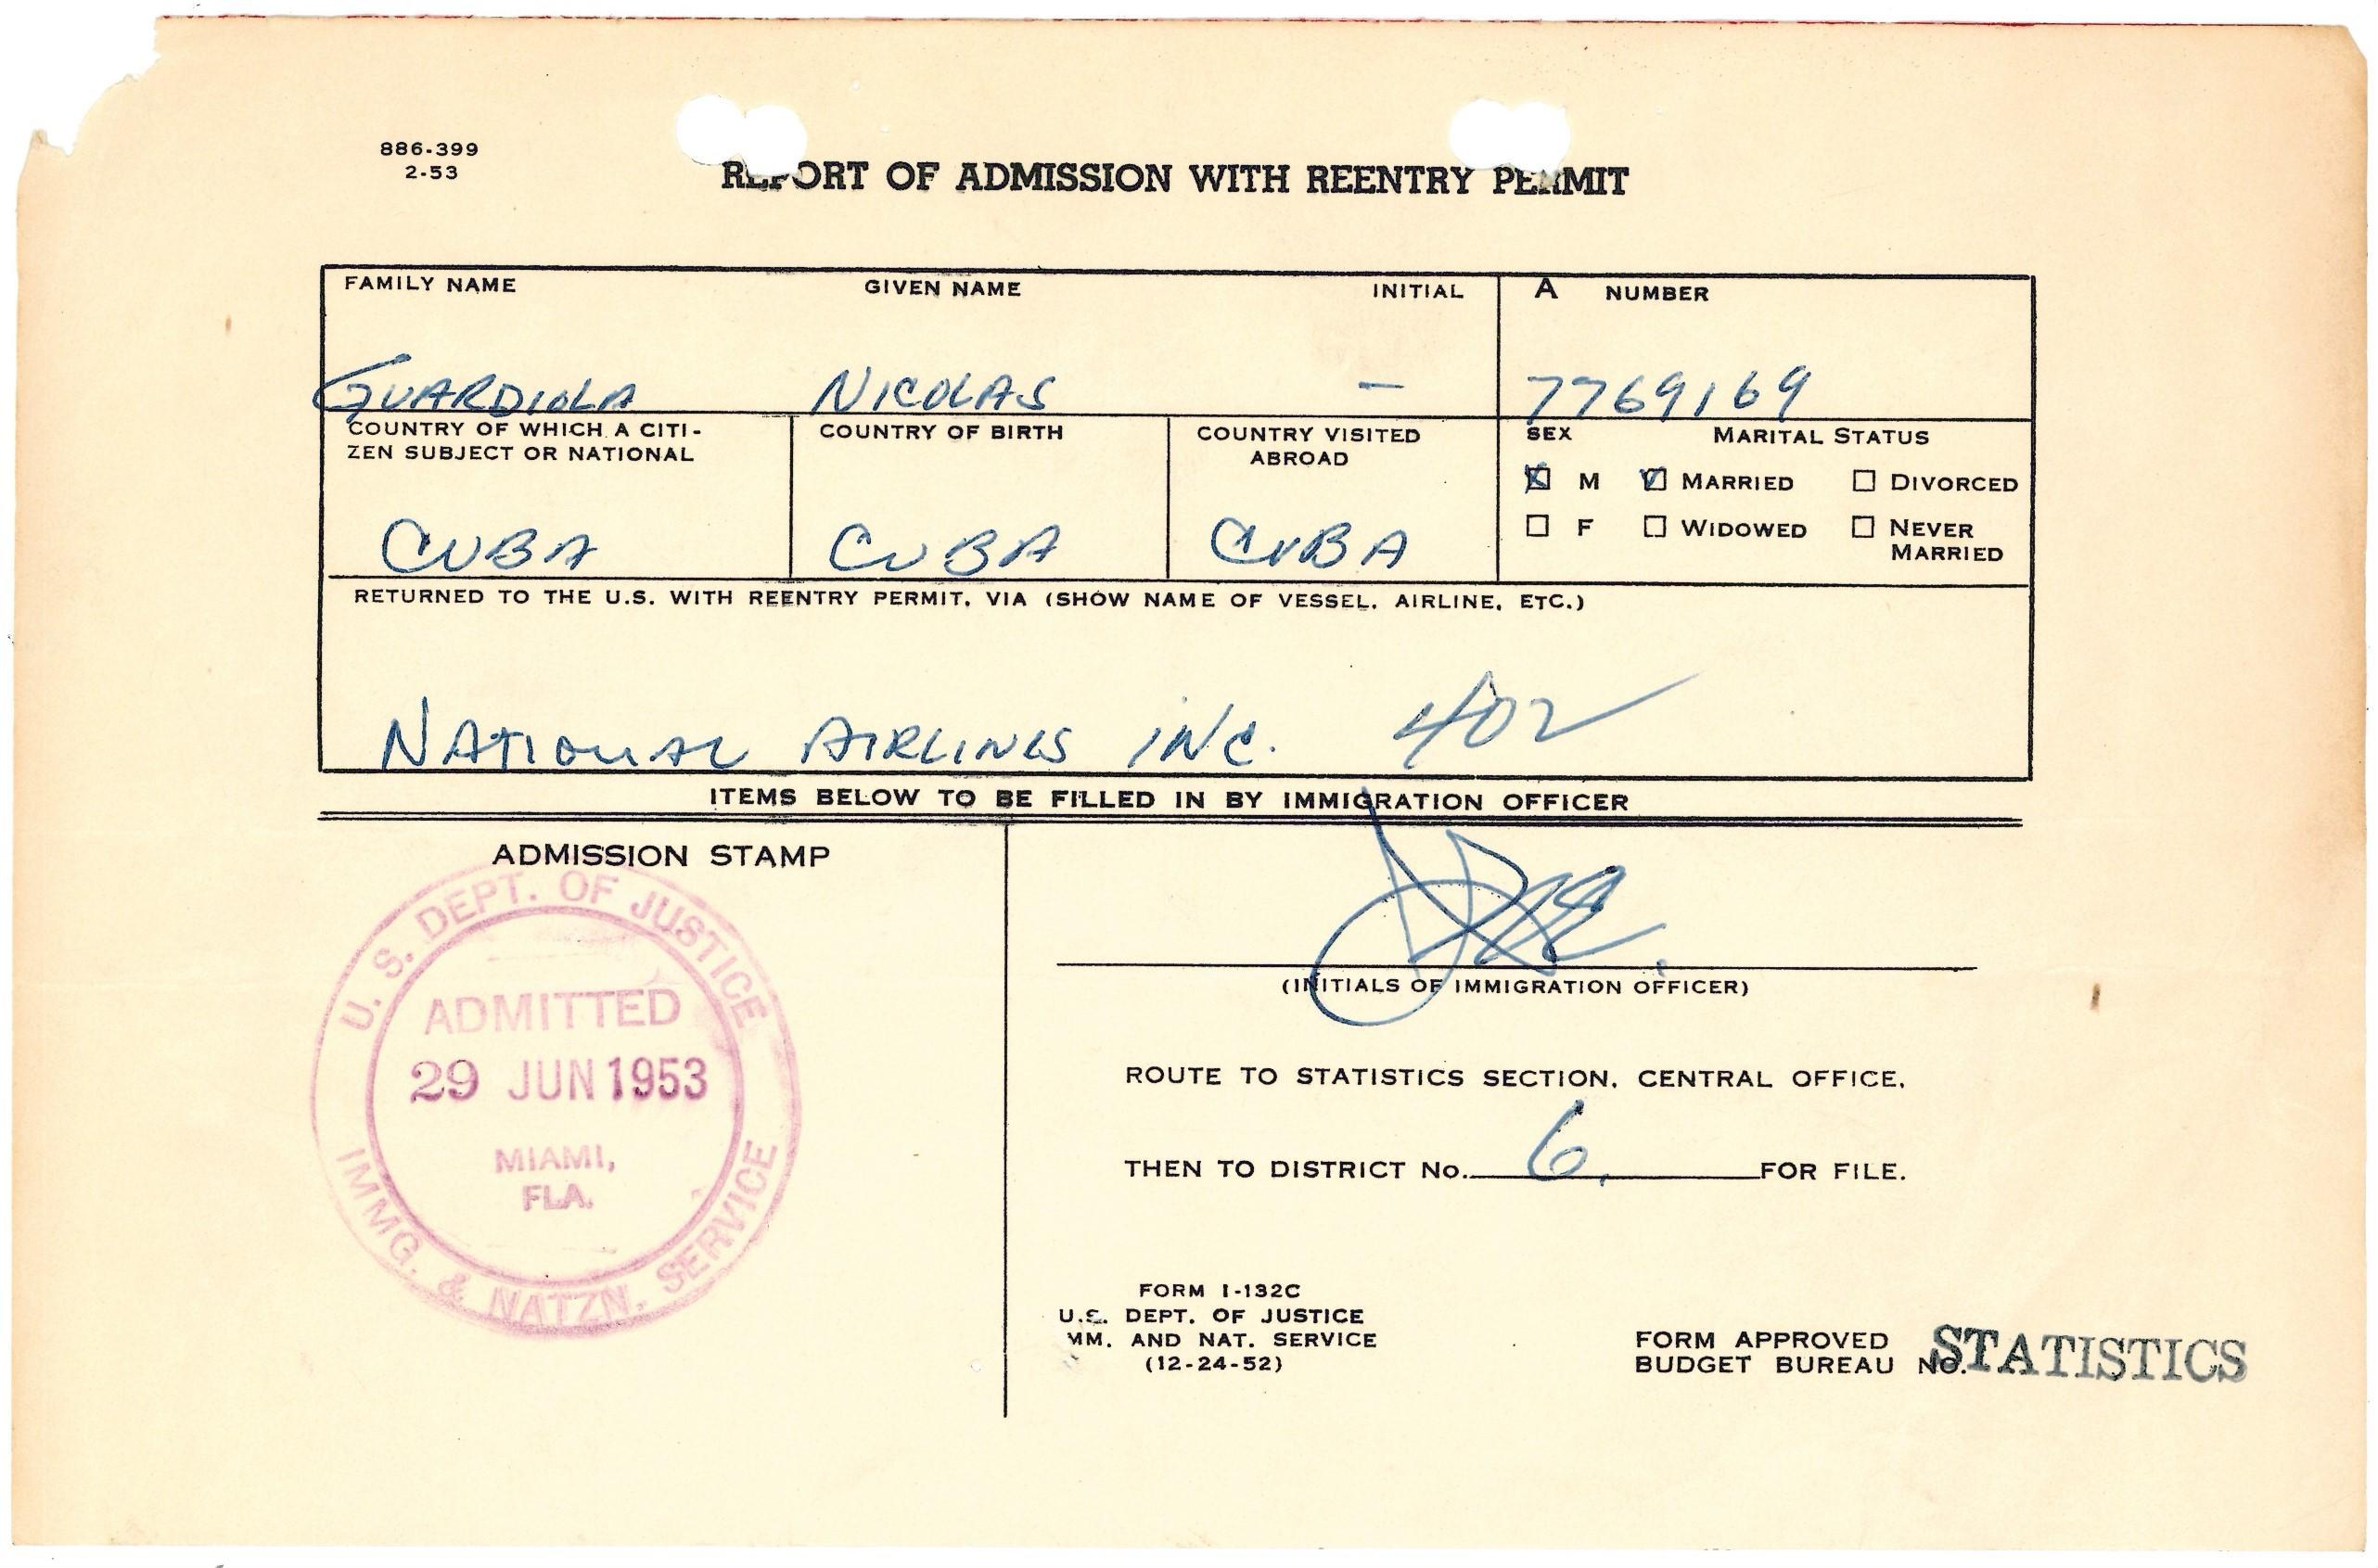 886-399
2-53
REPORT OF ADMISSION WITH REENTRY PERMIT
FAMILY NAME GIVEN NAME INITIAL A NUMBER
GUARDIOLA NICOLAS — 7769169
COUNTRY OF WHICH A CITI-
ZEN SUBJECT OR NATIONAL
CUBA
COUNTRY OF BIRTH
CUBA
COUNTRY VISITED
ABROAD
CUBA
SEX MARITAL STATUS
M MARRIED DIVORCED
F WIDOWED NEVER
MARRIED
RETURNED TO THE U.S. WITH REENTRY PERMIT, VIA (SHOW NAME OF VESSEL, AIRLINE, ETC.)
NATIONAL AIRLINES INC. 402
ITEMS BELOW TO BE FILLED IN BY IMMIGRATION OFFICER
ADMISSION STAMP
U. S. DEPT. OF JUSTICE
ADMITTED
29 JUN 1953
MIAMI,
FLA.
IMMG. & NATZN. SERVICE
(INITIALS OF IMMIGRATION OFFICER)
ROUTE TO STATISTICS SECTION, CENTRAL OFFICE,
THEN TO DISTRICT No. 6. FOR FILE.
FORM I-132C
U.S. DEPT. OF JUSTICE
IMM. AND NAT. SERVICE
(12-24-52)
FORM APPROVED
BUDGET BUREAU NO.
STATISTICS